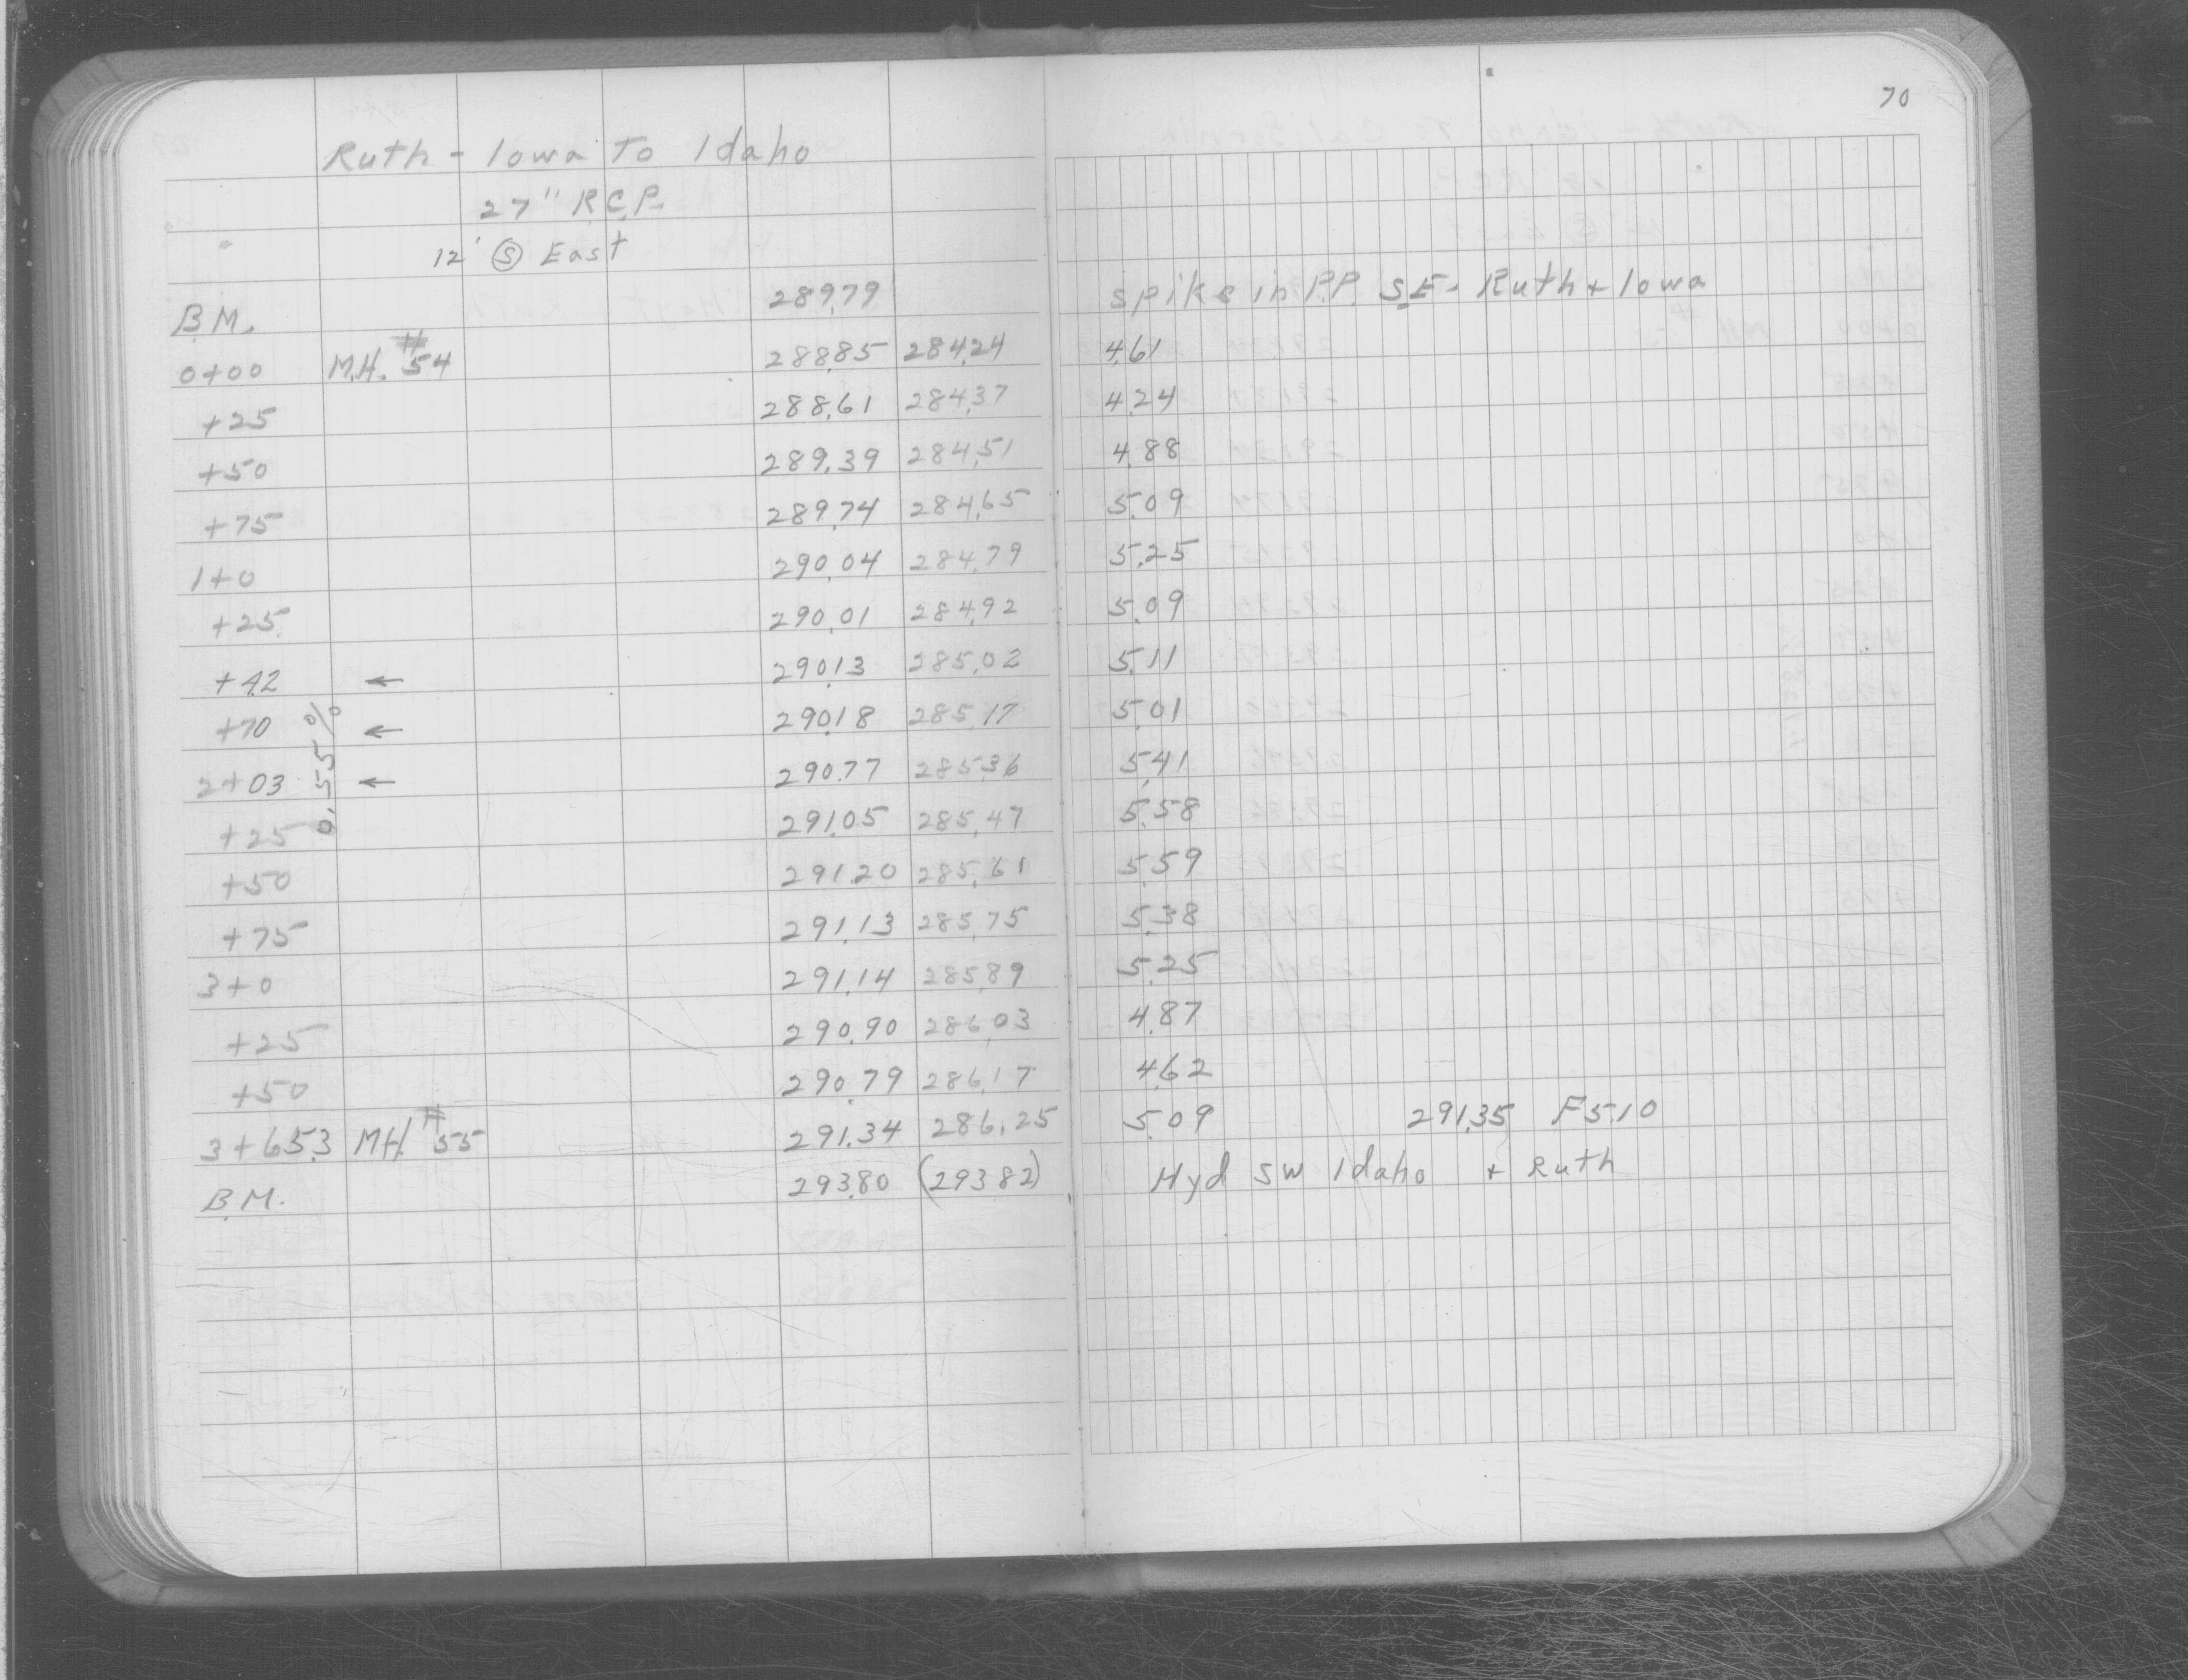 70
Ruth - Iowa To Idaho
27" R.C.P.
12' Ⓢ East
B.M. 289.79 Spike in P.P. S.E. - Ruth + Iowa
0+00 M.H. #54 288.85 284.24 4.61
+25 288.61 284.37 4.24
+50 289.39 284.51 4.88
+75 289.74 284.65 5.09
1+0 290.04 284.79 5.25
+25 290.01 284.92 5.09
+42 ← 290.13 285.02 5.11
+70 ← 290.18 285.17 5.01
2+03 ← 290.77 285.36 5.41
0.55%
+25 291.05 285.47 5.58
+50 291.20 285.61 5.59
+75 291.13 285.75 5.38
3+0 291.14 285.89 5.25
+25 290.90 286.03 4.87
+50 290.79 286.17 4.62
3+65.3 M.H. #55 291.34 286.25 5.09 291.35 F5.10
B.M. 293.80 (293.82) Hyd SW Idaho + Ruth